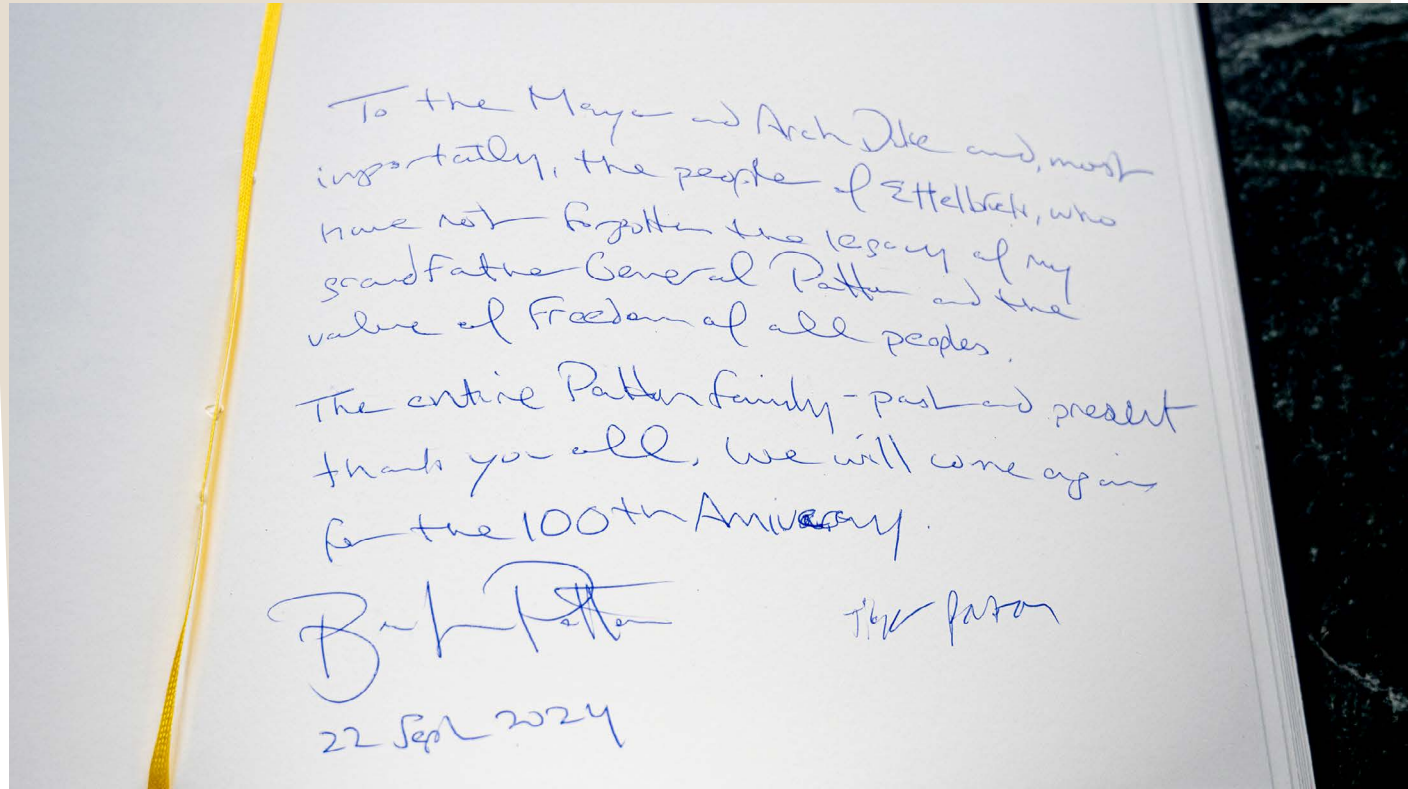 To the Mayor and Arch Duke and, most
importatly, the people of Ettelbruck, who
have not forgotten the legacy of my
grandfather General Patton and the
value of Freedom of all peoples.
The entire Patton family - past and present
thank you all. We will come again
for the 100th Aniversary.
Patton
Patton
22 Sept 2024